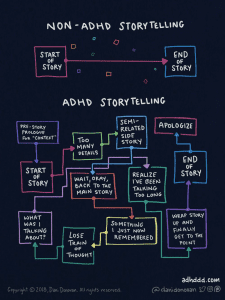 NON-ADHD STORYTELLING
START
OF
STORY
END
OF
STORY
ADHD STORYTELLING
PRE-STORY
PROLOGUE
FOR "CONTEXT"
START
OF
STORY
TOO
MANY
DETAILS
SEMI-
RELATED
SIDE
STORY
APOLOGIZE
WAIT, OKAY,
BACK TO THE
MAIN STORY
REALIZE
I'VE BEEN
TALKING
TOO LONG
END
OF
STORY
WHAT WAS I
TALKING
ABOUT?
LOSE
TRAIN OF
THOUGHT
SOMETHING
I JUST NOW
REMEMBERED
WRAP STORY
UP AND
FINALLY
GET TO THE
POINT
adhddd.com
Copyright © 2019, Dani Donovan. All rights reserved.
@danidonovan